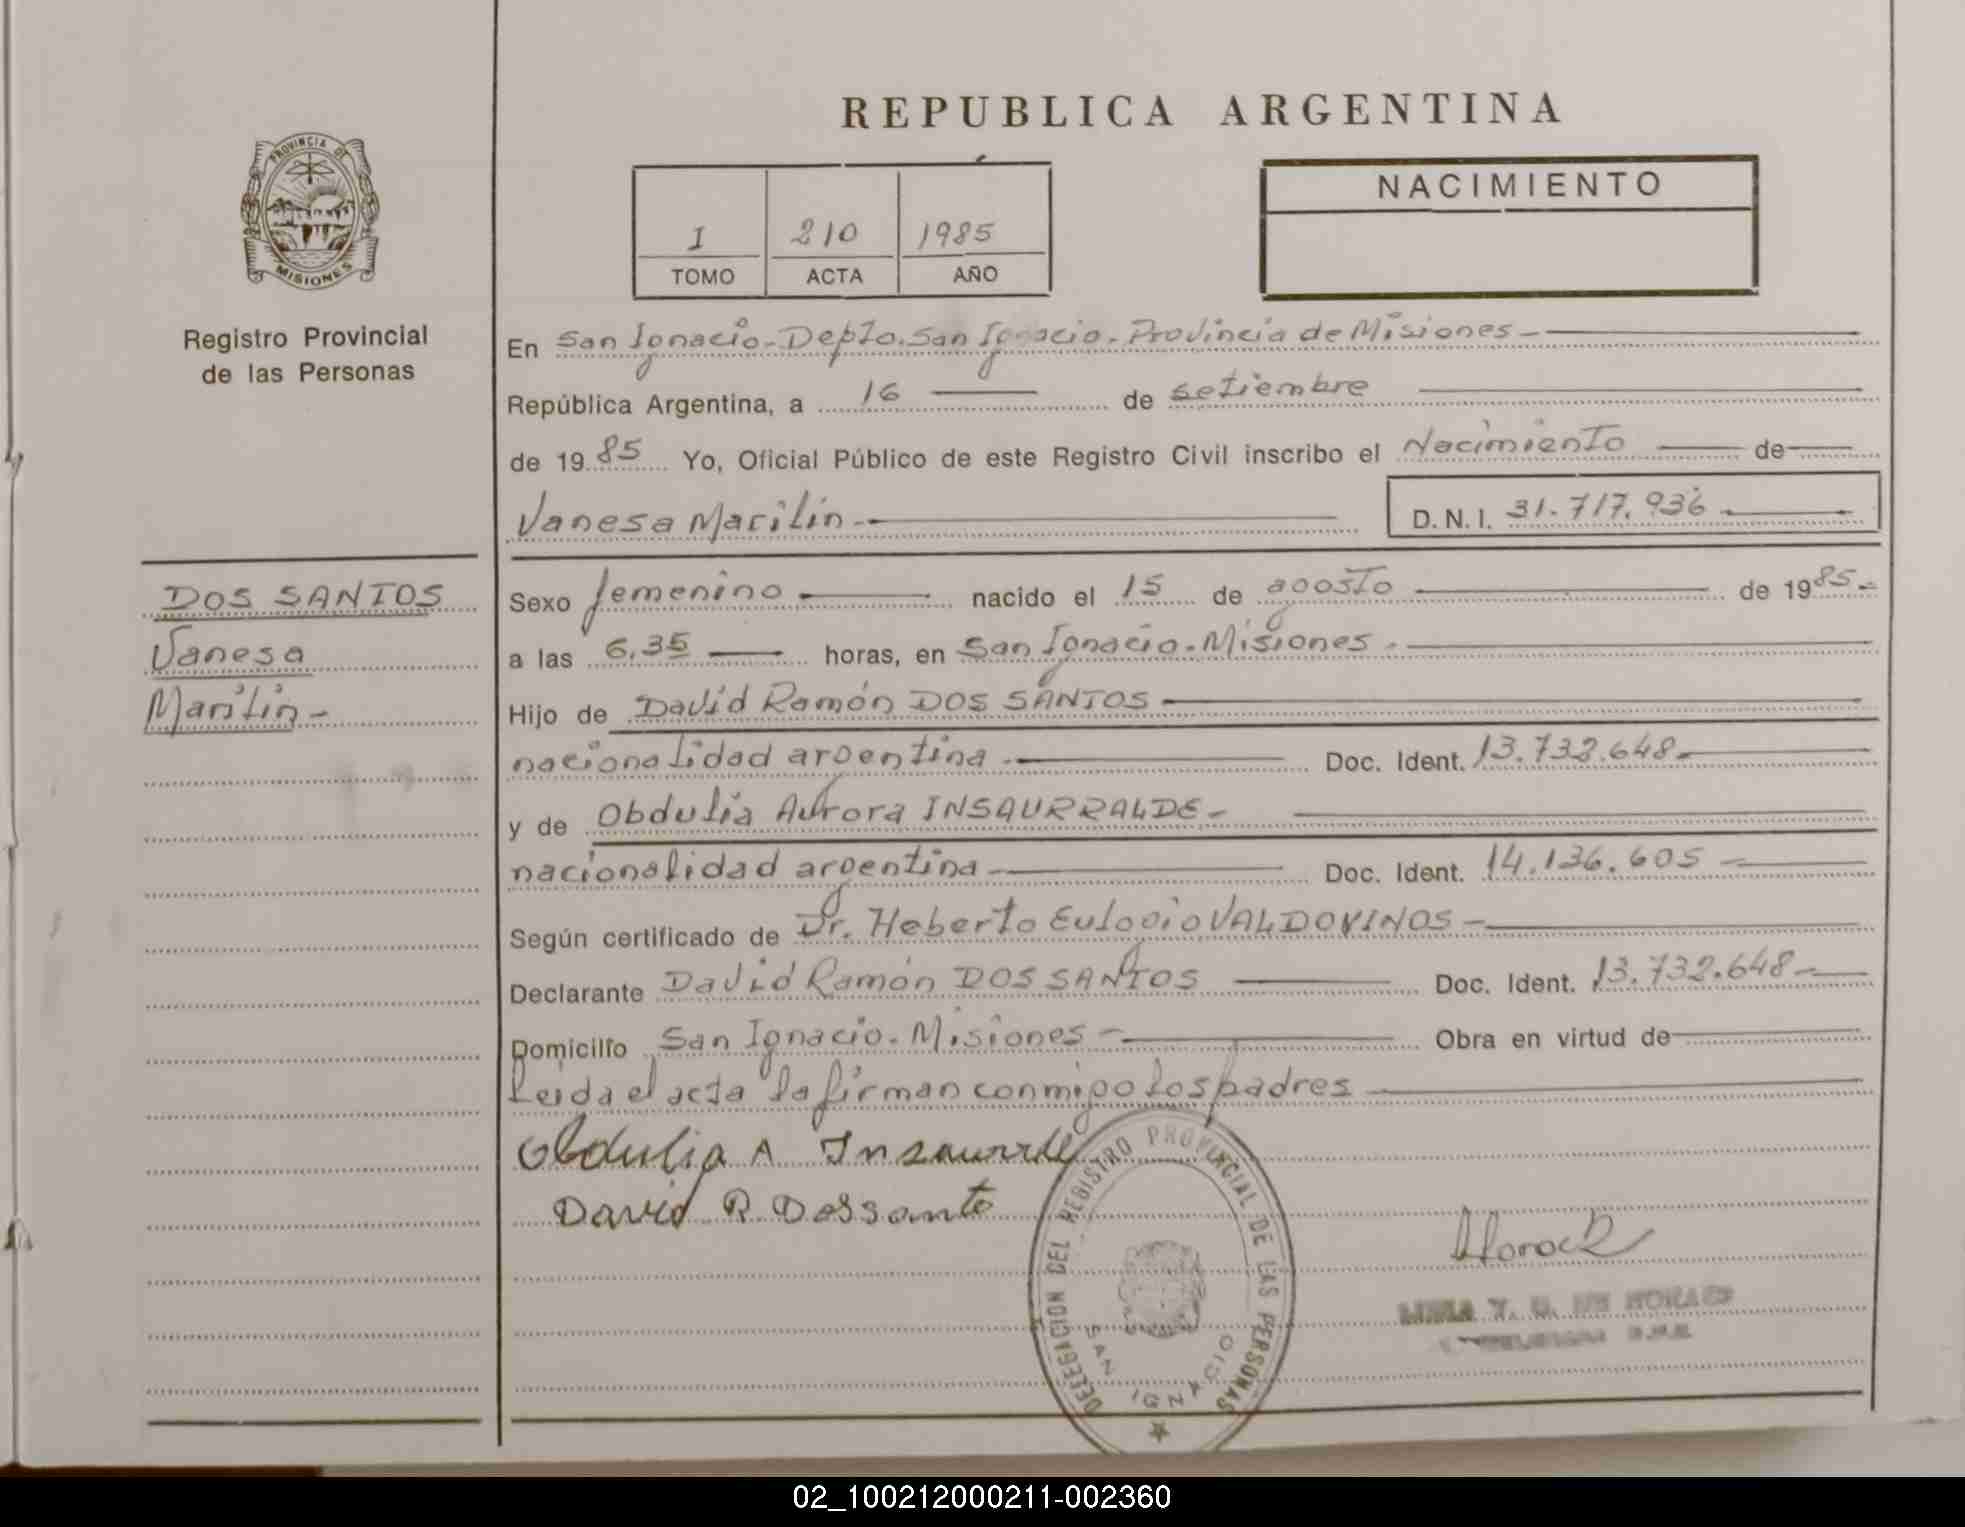 REPUBLICA ARGENTINA
PROVINCIA DE
MISIONES
Registro Provincial
de las Personas
I 210 1985
TOMO ACTA AÑO
NACIMIENTO
En San Ignacio - Depto. San Ignacio - Provincia de Misiones -
República Argentina, a 16 de setiembre
de 1985 Yo, Oficial Público de este Registro Civil inscribo el Nacimiento de
Vanesa Marilin - D.N.I. 31.717.936
DOS SANTOS
Vanesa
Marilin -
Sexo femenino nacido el 15 de agosto de 1985 -
a las 6,35 horas, en San Ignacio - Misiones -
Hijo de David Ramón DOS SANTOS
nacionalidad argentina - Doc. Ident. 13.732.648 -
y de Obdulia Aurora INSAURRALDE -
nacionalidad argentina Doc. Ident. 14.136.605 -
Según certificado de Dr. Heberto Eulogio VALDOVINOS -
Declarante David Ramón DOS SANTOS Doc. Ident. 13.732.648 -
Domicilio San Ignacio - Misiones - Obra en virtud de
Leida el acta la firman conmigo los padres
Obdulia A Insaurrde
David R. Dossanto
DELEGACION DEL REGISTRO PROVINCIAL DE LAS PERSONAS
SAN IGNACIO
02_100212000211-002360